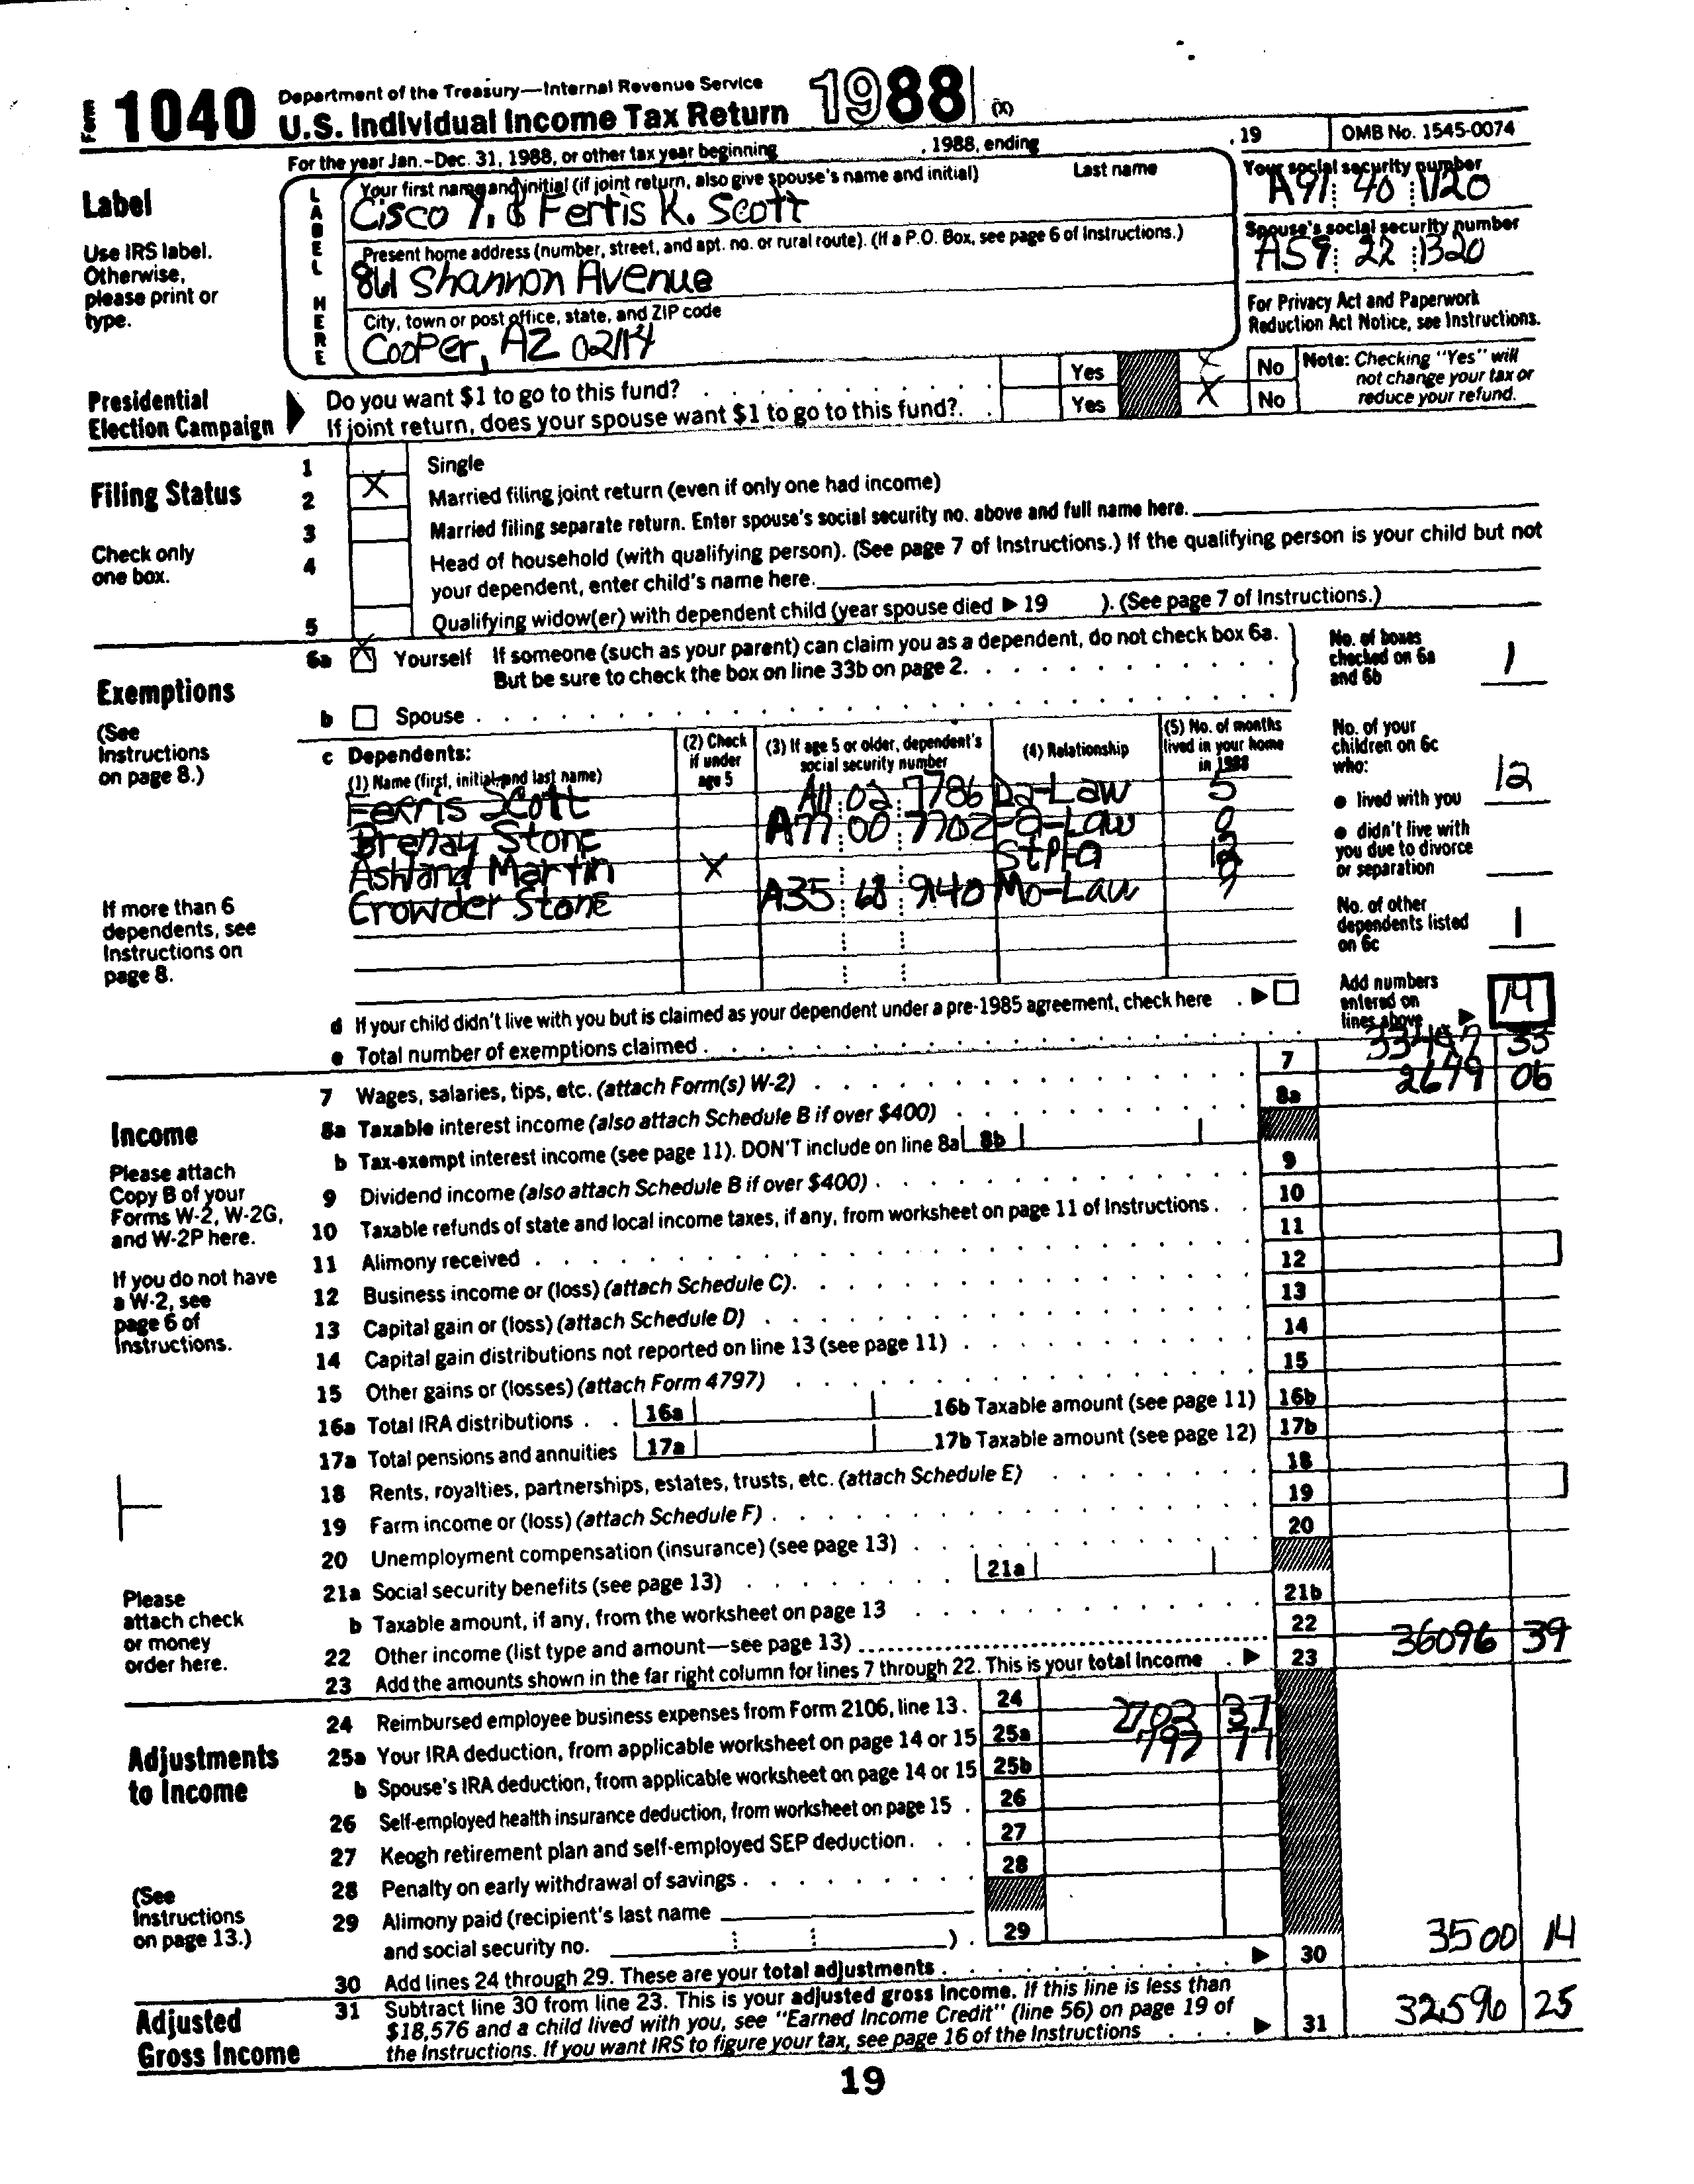 Form 1040 Department of the Treasury—Internal Revenue Service
U.S. Individual Income Tax Return 1988 (X)
For the year Jan.-Dec. 31, 1988, or other tax year beginning , 1988, ending , 19 OMB No. 1545-0074
Label
Use IRS label.
Otherwise,
please print or
type.
LABEL HERE
Your first name and initial (if joint return, also give spouse's name and initial) Last name
Cisco Y. & Fertis K. Scott
Present home address (number, street, and apt. no. or rural route). (If a P.O. Box, see page 6 of Instructions.)
861 Shannon Avenue
City, town or post office, state, and ZIP code
Cooper, AZ 02114
Your social security number
A91 40 1120
Spouse's social security number
AS9 22 1320
For Privacy Act and Paperwork
Reduction Act Notice, see Instructions.
Presidential
Election Campaign
Do you want $1 to go to this fund? Yes X No
If joint return, does your spouse want $1 to go to this fund? Yes X No
Note: Checking "Yes" will
not change your tax or
reduce your refund.
Filing Status
Check only
one box.
1 Single
2 X Married filing joint return (even if only one had income)
3 Married filing separate return. Enter spouse's social security no. above and full name here.
4 Head of household (with qualifying person). (See page 7 of Instructions.) If the qualifying person is your child but not
your dependent, enter child's name here.
5 Qualifying widow(er) with dependent child (year spouse died ▶ 19 ). (See page 7 of Instructions.)
Exemptions
(See
Instructions
on page 8.)
If more than 6
dependents, see
Instructions on
page 8.
6a X Yourself If someone (such as your parent) can claim you as a dependent, do not check box 6a.
But be sure to check the box on line 33b on page 2.
b Spouse
No. of boxes
checked on 6a
and 6b 1
c Dependents:
(1) Name (first, initial, and last name)
(2) Check
if under
age 5
(3) If age 5 or older, dependent's
social security number
(4) Relationship
(5) No. of months
lived in your home
in 1988
Ferris Scott A11 02 7786 Da-Law 5
Brenay Stone A77 00 7702 Pa-Law
Ashland Martin X StPFa 12
Crowder Stone A35 68 9140 Mo-Law 9
No. of your
children on 6c
who:
● lived with you 12
● didn't live with
you due to divorce
or separation
No. of other
dependents listed
on 6c 1
d If your child didn't live with you but is claimed as your dependent under a pre-1985 agreement, check here ▶
e Total number of exemptions claimed
Add numbers
entered on
lines above ▶ 14
Income
Please attach
Copy B of your
Forms W-2, W-2G,
and W-2P here.
If you do not have
a W-2, see
page 6 of
Instructions.
Please
attach check
or money
order here.
7 Wages, salaries, tips, etc. (attach Form(s) W-2) 7 33417 33
8a Taxable interest income (also attach Schedule B if over $400) 8a 2679 06
b Tax-exempt interest income (see page 11). DON'T include on line 8a 8b
9 Dividend income (also attach Schedule B if over $400) 9
10 Taxable refunds of state and local income taxes, if any, from worksheet on page 11 of Instructions 10
11 Alimony received 11
12 Business income or (loss) (attach Schedule C) 12
13 Capital gain or (loss) (attach Schedule D) 13
14 Capital gain distributions not reported on line 13 (see page 11) 14
15 Other gains or (losses) (attach Form 4797) 15
16a Total IRA distributions 16a 16b Taxable amount (see page 11) 16b
17a Total pensions and annuities 17a 17b Taxable amount (see page 12) 17b
18 Rents, royalties, partnerships, estates, trusts, etc. (attach Schedule E) 18
19 Farm income or (loss) (attach Schedule F) 19
20 Unemployment compensation (insurance) (see page 13) 20
21a Social security benefits (see page 13) 21a
b Taxable amount, if any, from the worksheet on page 13 21b
22 Other income (list type and amount—see page 13) 22
23 Add the amounts shown in the far right column for lines 7 through 22. This is your total income ▶ 23 36096 39
Adjustments
to Income
(See
Instructions
on page 13.)
24 Reimbursed employee business expenses from Form 2106, line 13. 24 2703 37
25a Your IRA deduction, from applicable worksheet on page 14 or 15 25a 797 77
b Spouse's IRA deduction, from applicable worksheet on page 14 or 15 25b
26 Self-employed health insurance deduction, from worksheet on page 15 26
27 Keogh retirement plan and self-employed SEP deduction 27
28 Penalty on early withdrawal of savings 28
29 Alimony paid (recipient's last name
and social security no. ) 29
30 Add lines 24 through 29. These are your total adjustments ▶ 30 3500 14
Adjusted
Gross Income
31 Subtract line 30 from line 23. This is your adjusted gross income. If this line is less than
$18,576 and a child lived with you, see "Earned Income Credit" (line 56) on page 19 of
the Instructions. If you want IRS to figure your tax, see page 16 of the Instructions ▶ 31 32596 25
19